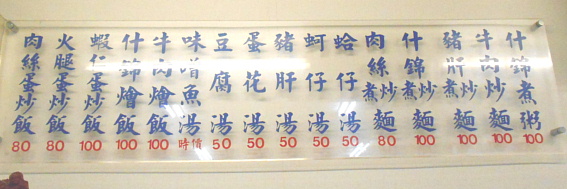 什錦煮粥 100
牛肉煮炒麵 100
豬肝煮炒麵 100
什錦煮炒麵 100
肉絲煮炒麵 80
蛤仔湯 50
蚵仔湯 50
豬肝湯 50
蛋花湯 50
豆腐湯 50
味噌魚湯 時價
牛肉燴飯 100
什錦燴飯 100
蝦仁蛋炒飯 100
火腿蛋炒飯 80
肉絲蛋炒飯 80